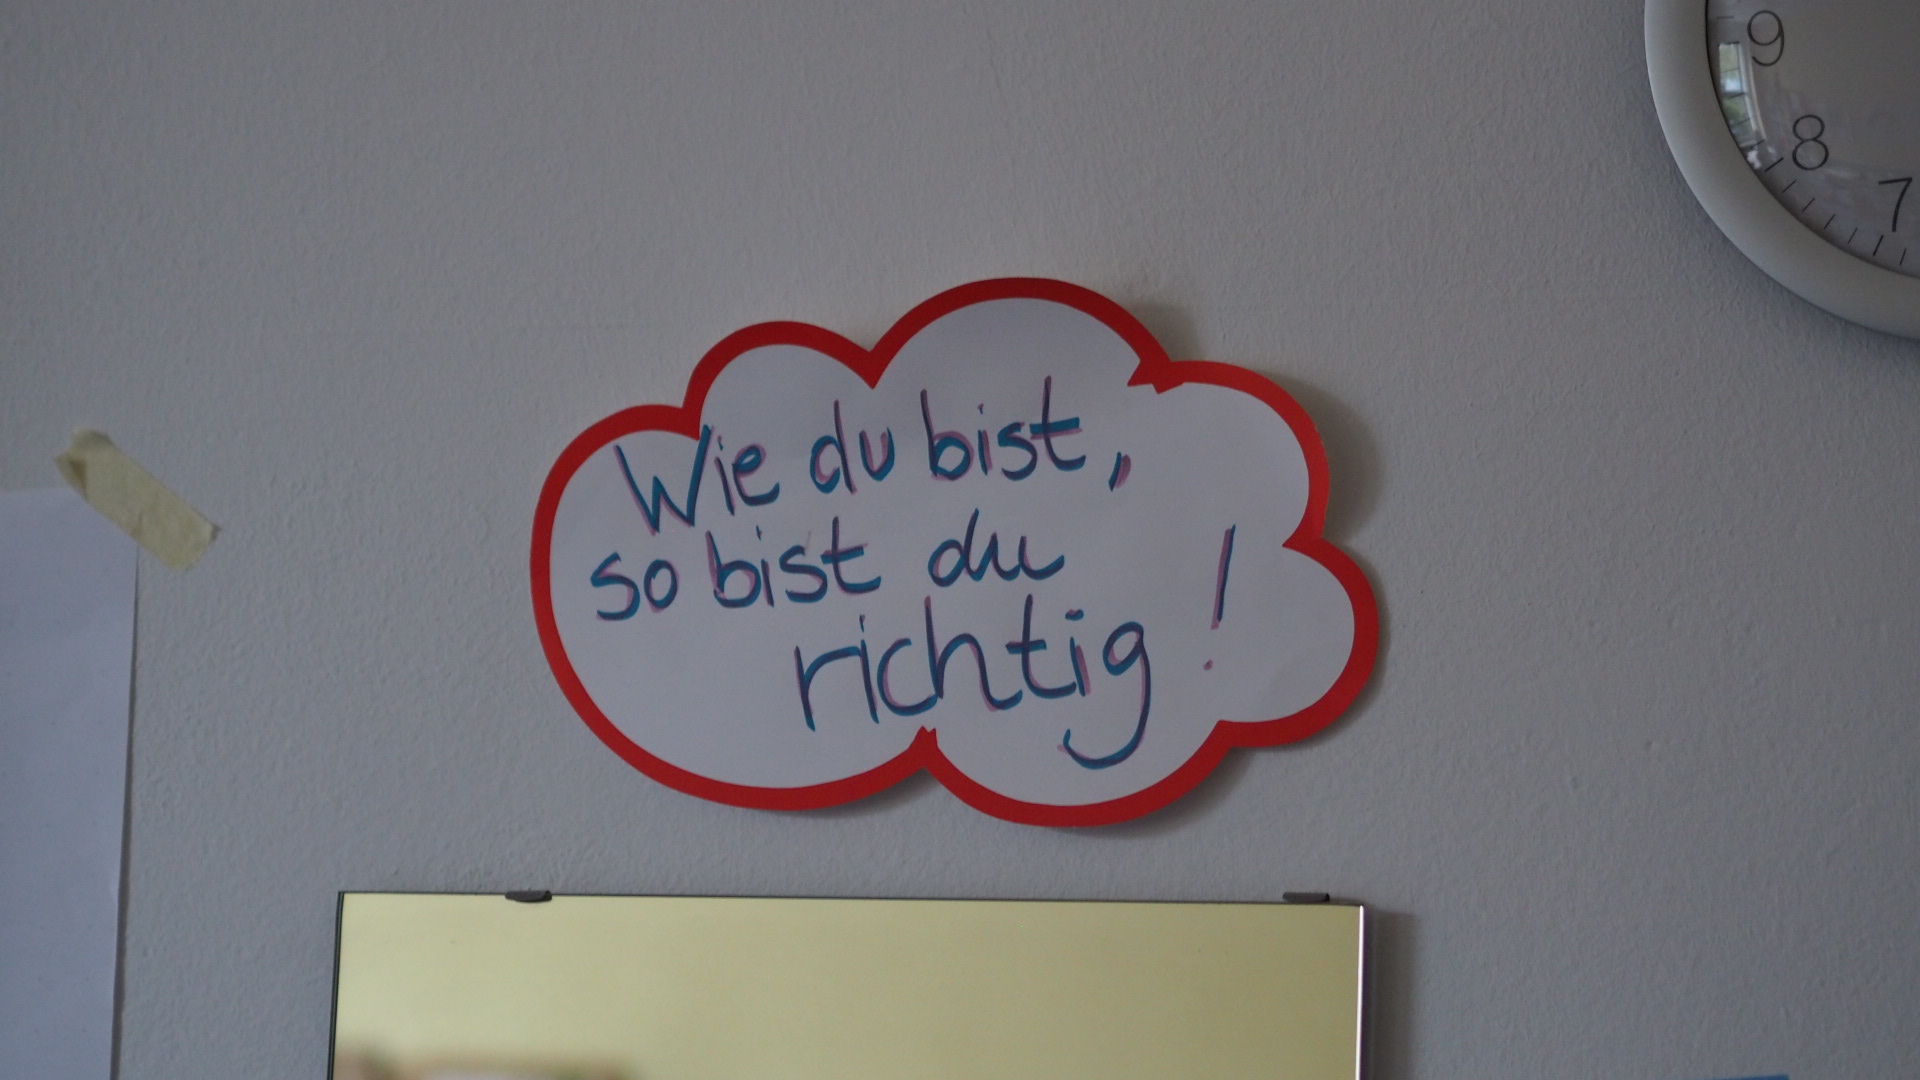 Wie du bist,
so bist du
richtig!
9
8
7